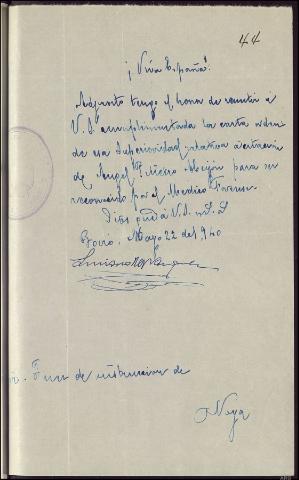 44
¡Viva España!
Adjunto tengo el honor de remitir á
V.S. cumplimentada la carta orden
de esa Superioridad relativa a citación
de Angel para ser
reconocido por el Medico Forense.
Dios gude á V.S. m. a.
Mayo 22 del 940
Sr. Juez de instruccion de
Noya